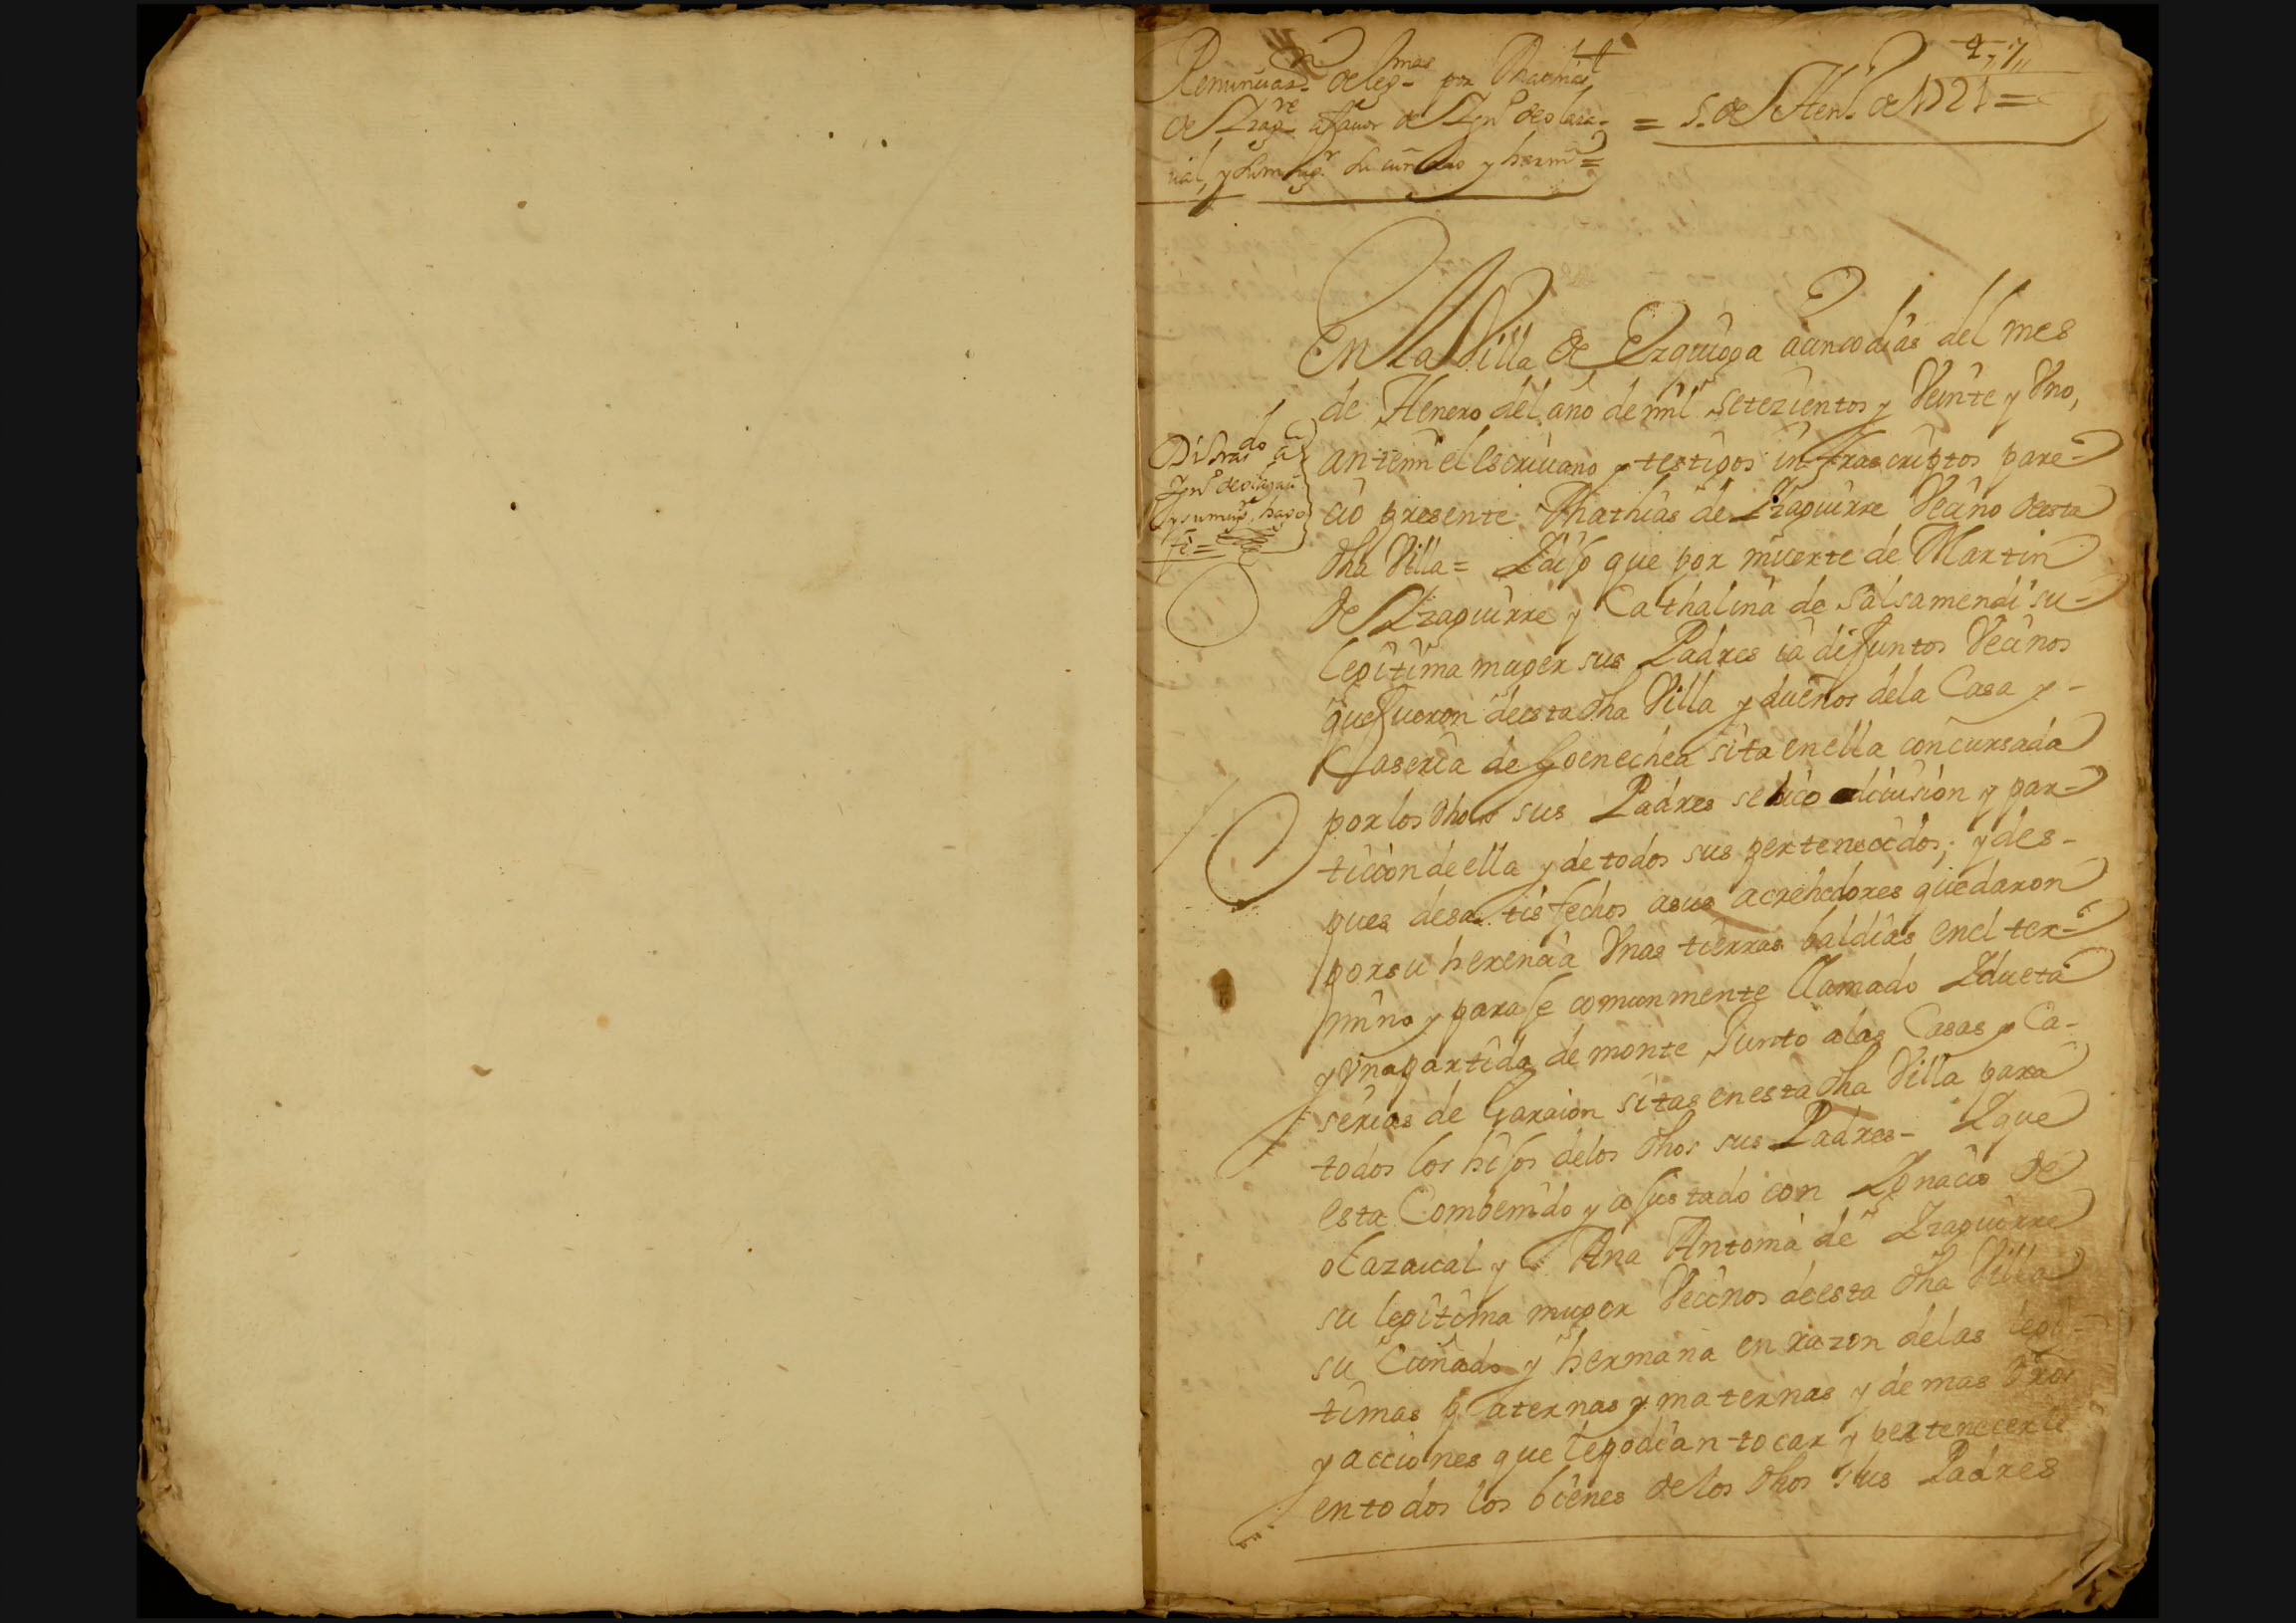 Renunciaz.n de leg.mas por Mathias
de Yzag.re afavor de Ygn.o de olaza-
ual, y su mug.r su cuñado y herm.a =
= 5. de Hen.o de 1721 =
En la Villa de Ezquioga a cinco dias del mes
de Henero del año de mil setezientos y Veinte y Vno,
ante mi el escriuano y testigos infrascriptos pare-
cio presente Mathias de Yzaguirre Vecino desta
dha Villa = Y dijo que por muerte de Martin
de Yzaguirre y Cathalina de Salsamendi su-
legitima muger sus Padres ia difuntos Vecinos
que fueron de esta dha Villa y dueños dela Casa y -
Caseria de Goenechea sita enella concursada
por los dhos sus Padres se hico diuision y par-
ticion de ella y de todos sus pertenecidos; y des-
pues de satisfechos asus acrehedores quedaron
por su herencia Vnas tierras baldias enel ter-
mino y paraje comunmente llamado Ydueta
y Vna partida de monte Junto alas Casas y Ca-
serias de Garaion sitas en esta dha Villa para
todos los hijos delos dhos sus Padres - Y que
esta Combenido y ajustado con Ygnacio de
olazaual y Ana Antonia de Yzaguirre
su legitima muger Vecinos de esta dha Villa
su Cuñado y hermana en razon delas legi-
timas paternas y maternas y demas dros
y acciones que le podian tocar y pertenecerle
en todos los bienes de los dhos sus Padres
Di tras.do a
Ygn.o de olazaual
y su mug.r, hago
fe =